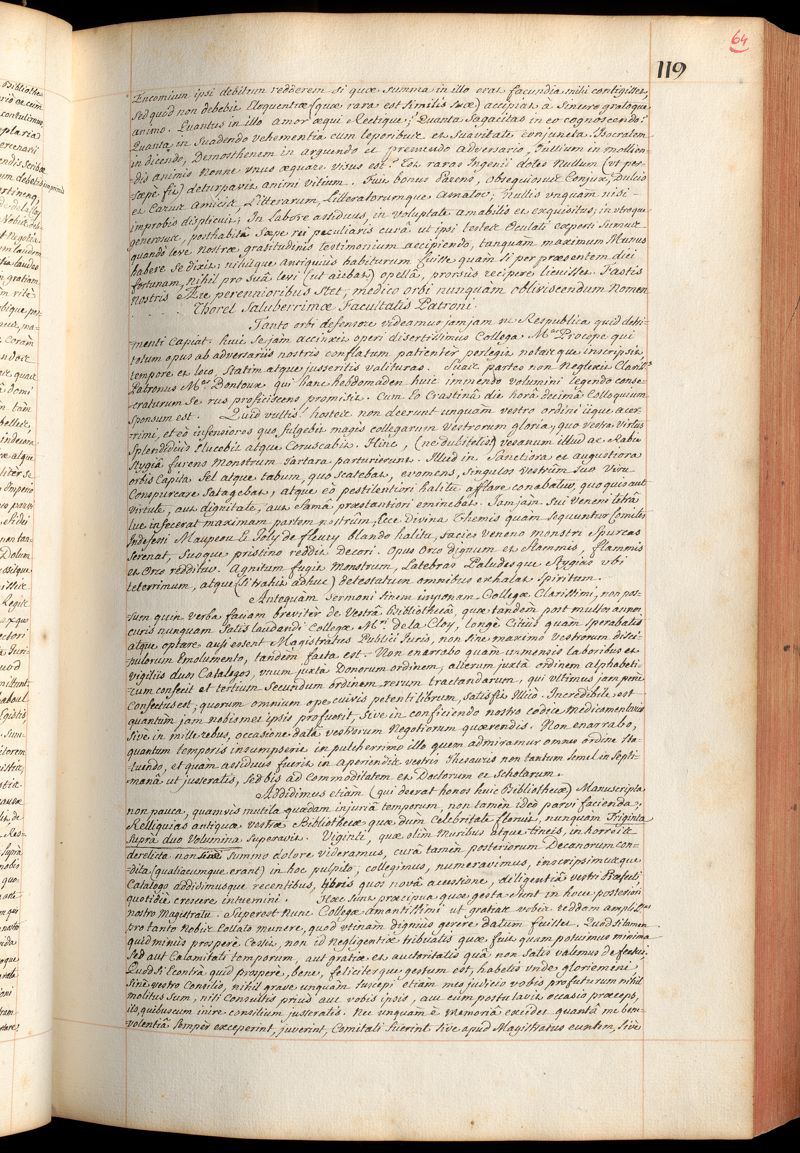 64
119
Encomium ipsi debitum redderem si quæ summa in illo erat facundia mihi contigisset,
sed quod non debebit Eloquentiæ (quæ rara est similis suæ) accipiat à sincero gratoque
animo. Quantus in illo amor æqui Rectique! Quanta Sagacitas in eo cognoscendo!
Quanta in Suadendo vehementia cum leporibus et suavitate conjuncta. Isocratem
in dicendo, Demosthenem in arguendo et premendo adversario, Tullium in mollien-
dis animis nonne unus æquare visus est? Tot raras Ingenii dotes Nullum (ut per-
sæpe fit) deturpavit animi vitium. Fuit bonus Parens, obsequiosus Conjux, Dulcis
et Carus Amicis, Litterarum, Litteratorumque Amator; Nullis unquam nisi
improbis displicuit; In Labore assiduus, in voluptate amabilis et exquisitus; in utroque
generosus, posthabitâ Sæpe rei peculiaris curâ ut ipsi testes Oculati experti Sumus
quando leve Nostræ gratitudinis testimonium accipiendo, tanquam maximum Munus
habere Se dixit; nihilque antiquius habiturum fuisse quàm si per præsentem diei
fortunam, nihil pro suâ levi (ut aiebat) opellâ, prorsus recipere licuisset. Fastis
nostris Ære perennioribus Stet, medico orbi nunquàm obliviscendum Nomen
Thorel Saluberrimæ Facultatis Patroni.
Tanto orbi defensore videamus jamjam ne Respublica quid detri-
menti Capiat. huic se jam accinxit operi disertissimus Collega Mr. Procope qui
totum opus ab adversariis nostris conflatum patienter perlegit notasque inscripsit
tempore et loco, Statim atque jusseritis valituras. Suas partes non Neglexit Clariss.
Patronus Mr. Pontoux qui hanc hebdomadem huic immenso volumini legendo conse-
craturum Se rus proficiscens promisit. Cum Eo Crastinâ die horâ decimâ Colloquium
Sponsum est. Quid vultis! hostes non deerunt unquàm vestro ordini iique acer-
rimi, et eò infensiores quo fulgebit magis collegarum vestrorum gloria, quo vestra virtus
Splendidius Elucebit atque Coruscabit. Hinc, (ne dubitetis) vesanum illud ac Rabie
Stygiâ furens Monstrum Tartara parturierunt. Illud in Sanctiora et augustiora
orbis Capita Fel atque tabum, quo scatebat, evomens, singulos vestrûm suo Viru
Conspurcare Satagebat, atque eò pestilentiori halitu afflare conabatur, quo quis aut
virtute, aut dignitate, aut Famâ præstantiori eminebat. Jamjam Sui veneni letrâ
lue infecerat maximam partem nostrûm, Ecce Divina Themis quàm sequuntur Comites
Indefessi Maupeou Le Joly de fleury blando halitu, facies veneno monstri Spurcas
Serenat, Suoque pristino reddit decori. Opus Orco dignum et flammis, flammis
et Orco redditur. Agnitum fugit Monstrum, Latebras Paludesque Stygias ubi
teterrimum, atque (si trahit adhuc) detestatum omnibus exhalat Spiritum.
Antequàm Sermoni finem imponam Collegæ Clarissimi, non pos-
sum quin verba faciam breviter de Vestrâ Bibliothecâ, quæ tandem post multos annos
curis nunquam Satis laudandi Collegæ Mri. de la Cloy, longè Citius quàm sperabatis
atque optare ausi essent Magistratus Publici Juris, non sine maximo vestrorum disci-
pulorum Emolumento, tandem facta est. Non enarrabo quàm immensis laboribus et
vigiliis duos Catalogos, unum juxtà Donorum ordinem, alterum juxtà ordinem alphabeti-
cum confecit et tertium Secundum ordinem rerum tractandarum, qui ultimus jam penè
Confectus est, quorum omnium ope cuivis petenti librum, satis fit Illico. Incredibile est
quantùm jam nobismet ipsis profuerit, sive in conficiendo nostro codice Medicamentario
Sive in mille rebus, occasione datâ vestrorum Negotiorum quærendis. Non enarrabo,
quantum temporis insumpserit in pulcherrimo illo quem admiramur omnes ordine Sta-
tuendo, et quàm assiduus fuerit in aperiendis vestris Thesauris non tantum semel in Septi-
manâ ut jusseratis, sed bis ad commoditatem et Doctorum et scholarum.
Addidimus etiàm (qui deerat honos huic Bibliothecæ) Manuscripta
non pauca, quamvis mutila quædam injuriâ temporum, non tamen ideò parvi facienda;
Relliquias antiquæ vestræ Bibliothecæ quæ dum Celebritate floruit, nunquàm Triginta
supra duo Volumina superavit. Viginti, quæ olim muribus atque tineis, in horreis
derelicta non sine summo dolore videramus, curâ tamen posteriorum Decanorum con-
dita (qualiacumque erant) in hoc pulpito; collegimus, numeravimus, inscripsimusque
Catalogo addidimusque recentibus, libris quos novâ accessione, diligentiâ vestri Præfecti
quotidiè crescere intuemini. Hæc Sunt præcipua quæ gesta Sunt in hocce posteriori
nostro Magistratu. Superest Nunc Collegæ amantissimi ut gratias vobis reddam ampl.mas
pro tanto Nobis Collato munere, quod utinam dignius gerere datum fuisset. Quod Si tamen
quid minus prosperè Cessit, non id negligentiæ tribuatis quæ fuit quam potuimus minima
Sed aut Calamitati temporum, aut gratiæ et auctoritatis quâ non Satis valemus defectui.
Quod si Contrà quid prosperè, bene, feliciterque gestum est, habetis unde gloriemini
Sine vestro Consilio, nihil grave unquàm suscepi etiàm meo judicio vobis profuturum nihil
molitus Sum, nisi Consultis priùs aut vobis ipsis, aut cum postulavit occasio præceps,
iis, quibuscum inire consilium jusseratis. Nec unquàm è Memoriâ excidet quantâ me bene-
volentiâ Semper exceperint, juverint, Comitati fuerint, sive apud Magistratus euntem, sive